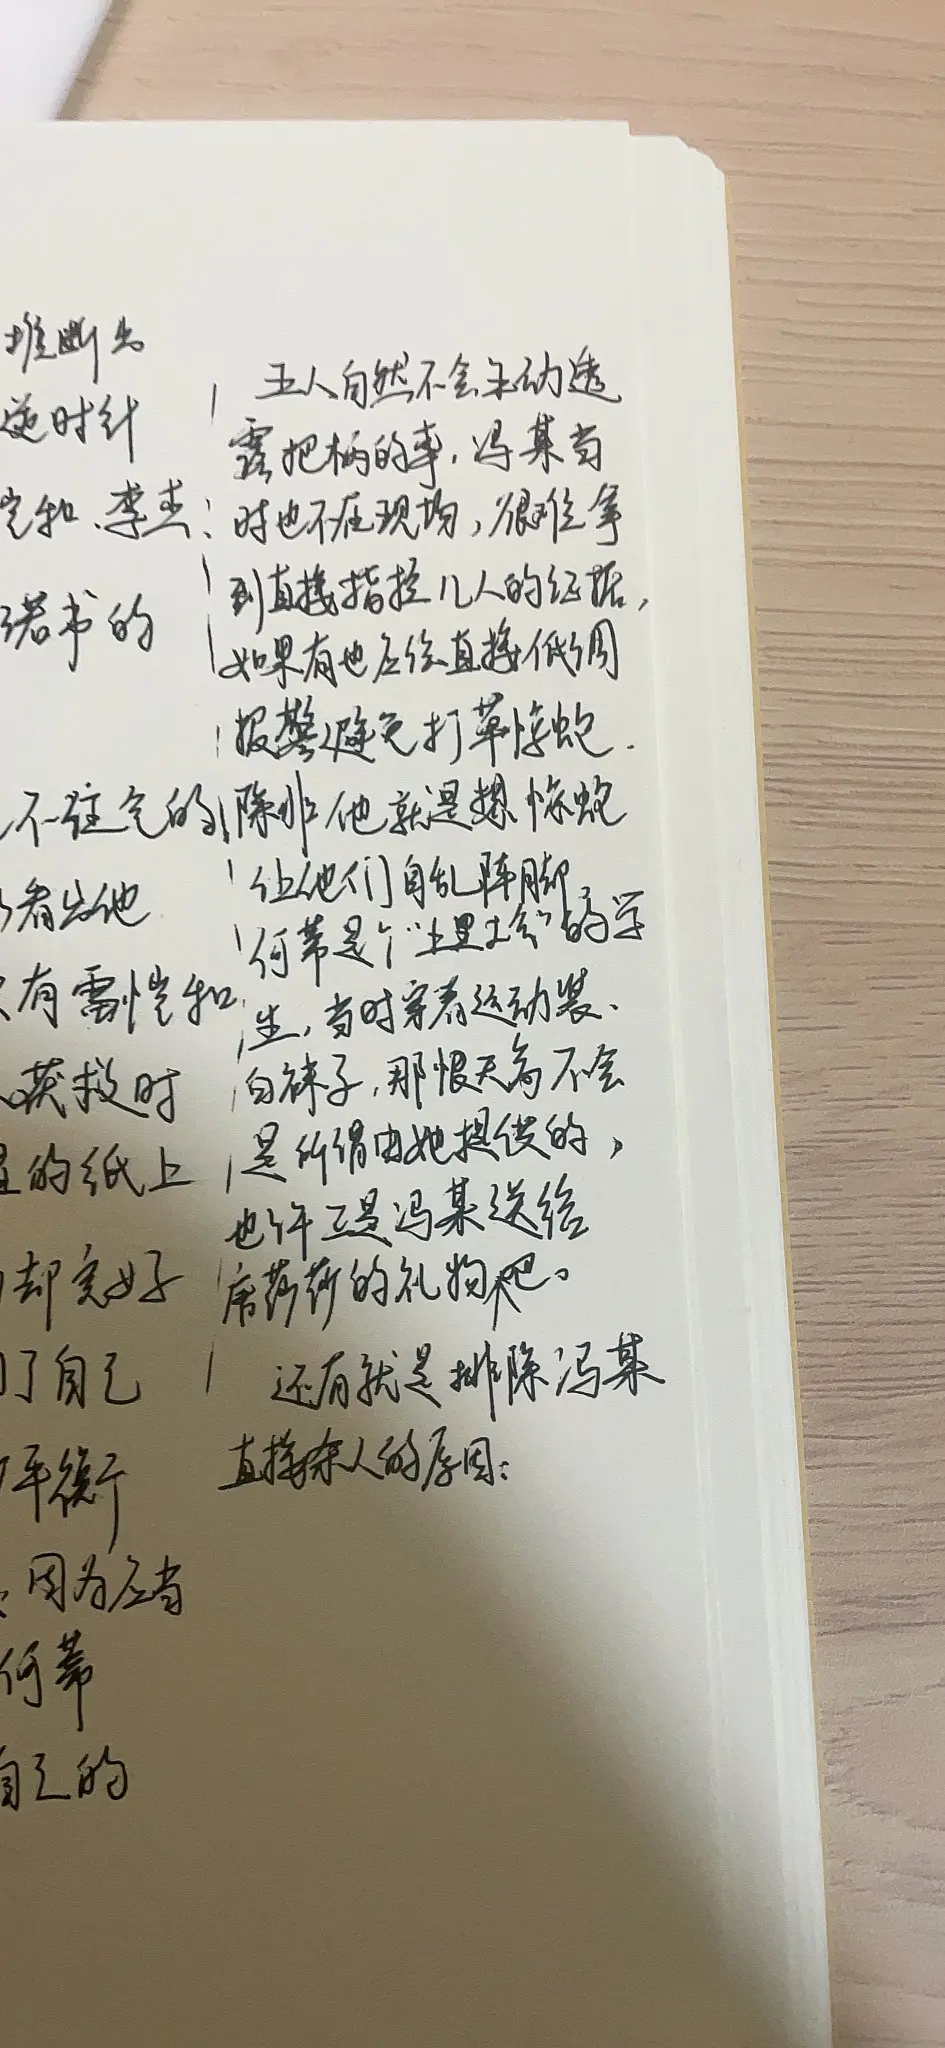 推断出
逆时针
恺和、李杰:
诺书的
不注气的
看出他
只有雷恺和
获救时
的纸上
却完好
了自己
平衡
因为应当
何蒂
自己的
五人自然不会主动透
露把柄的事,冯某当
时也不在现场,很难拿
到直接指控几人的证据,
如果有也应给直接低调
报警避免打草惊蛇.
除非他就是想惊蛇
让他们自乱阵脚
何蒂是个“土里土气”的学
生,当时穿着运动装、
白袜子,那恨天高不会
是所谓由她提供的,
也许正是冯某送给
席荷荷的礼物吧。
还有就是排除冯某
直接杀人的原因: